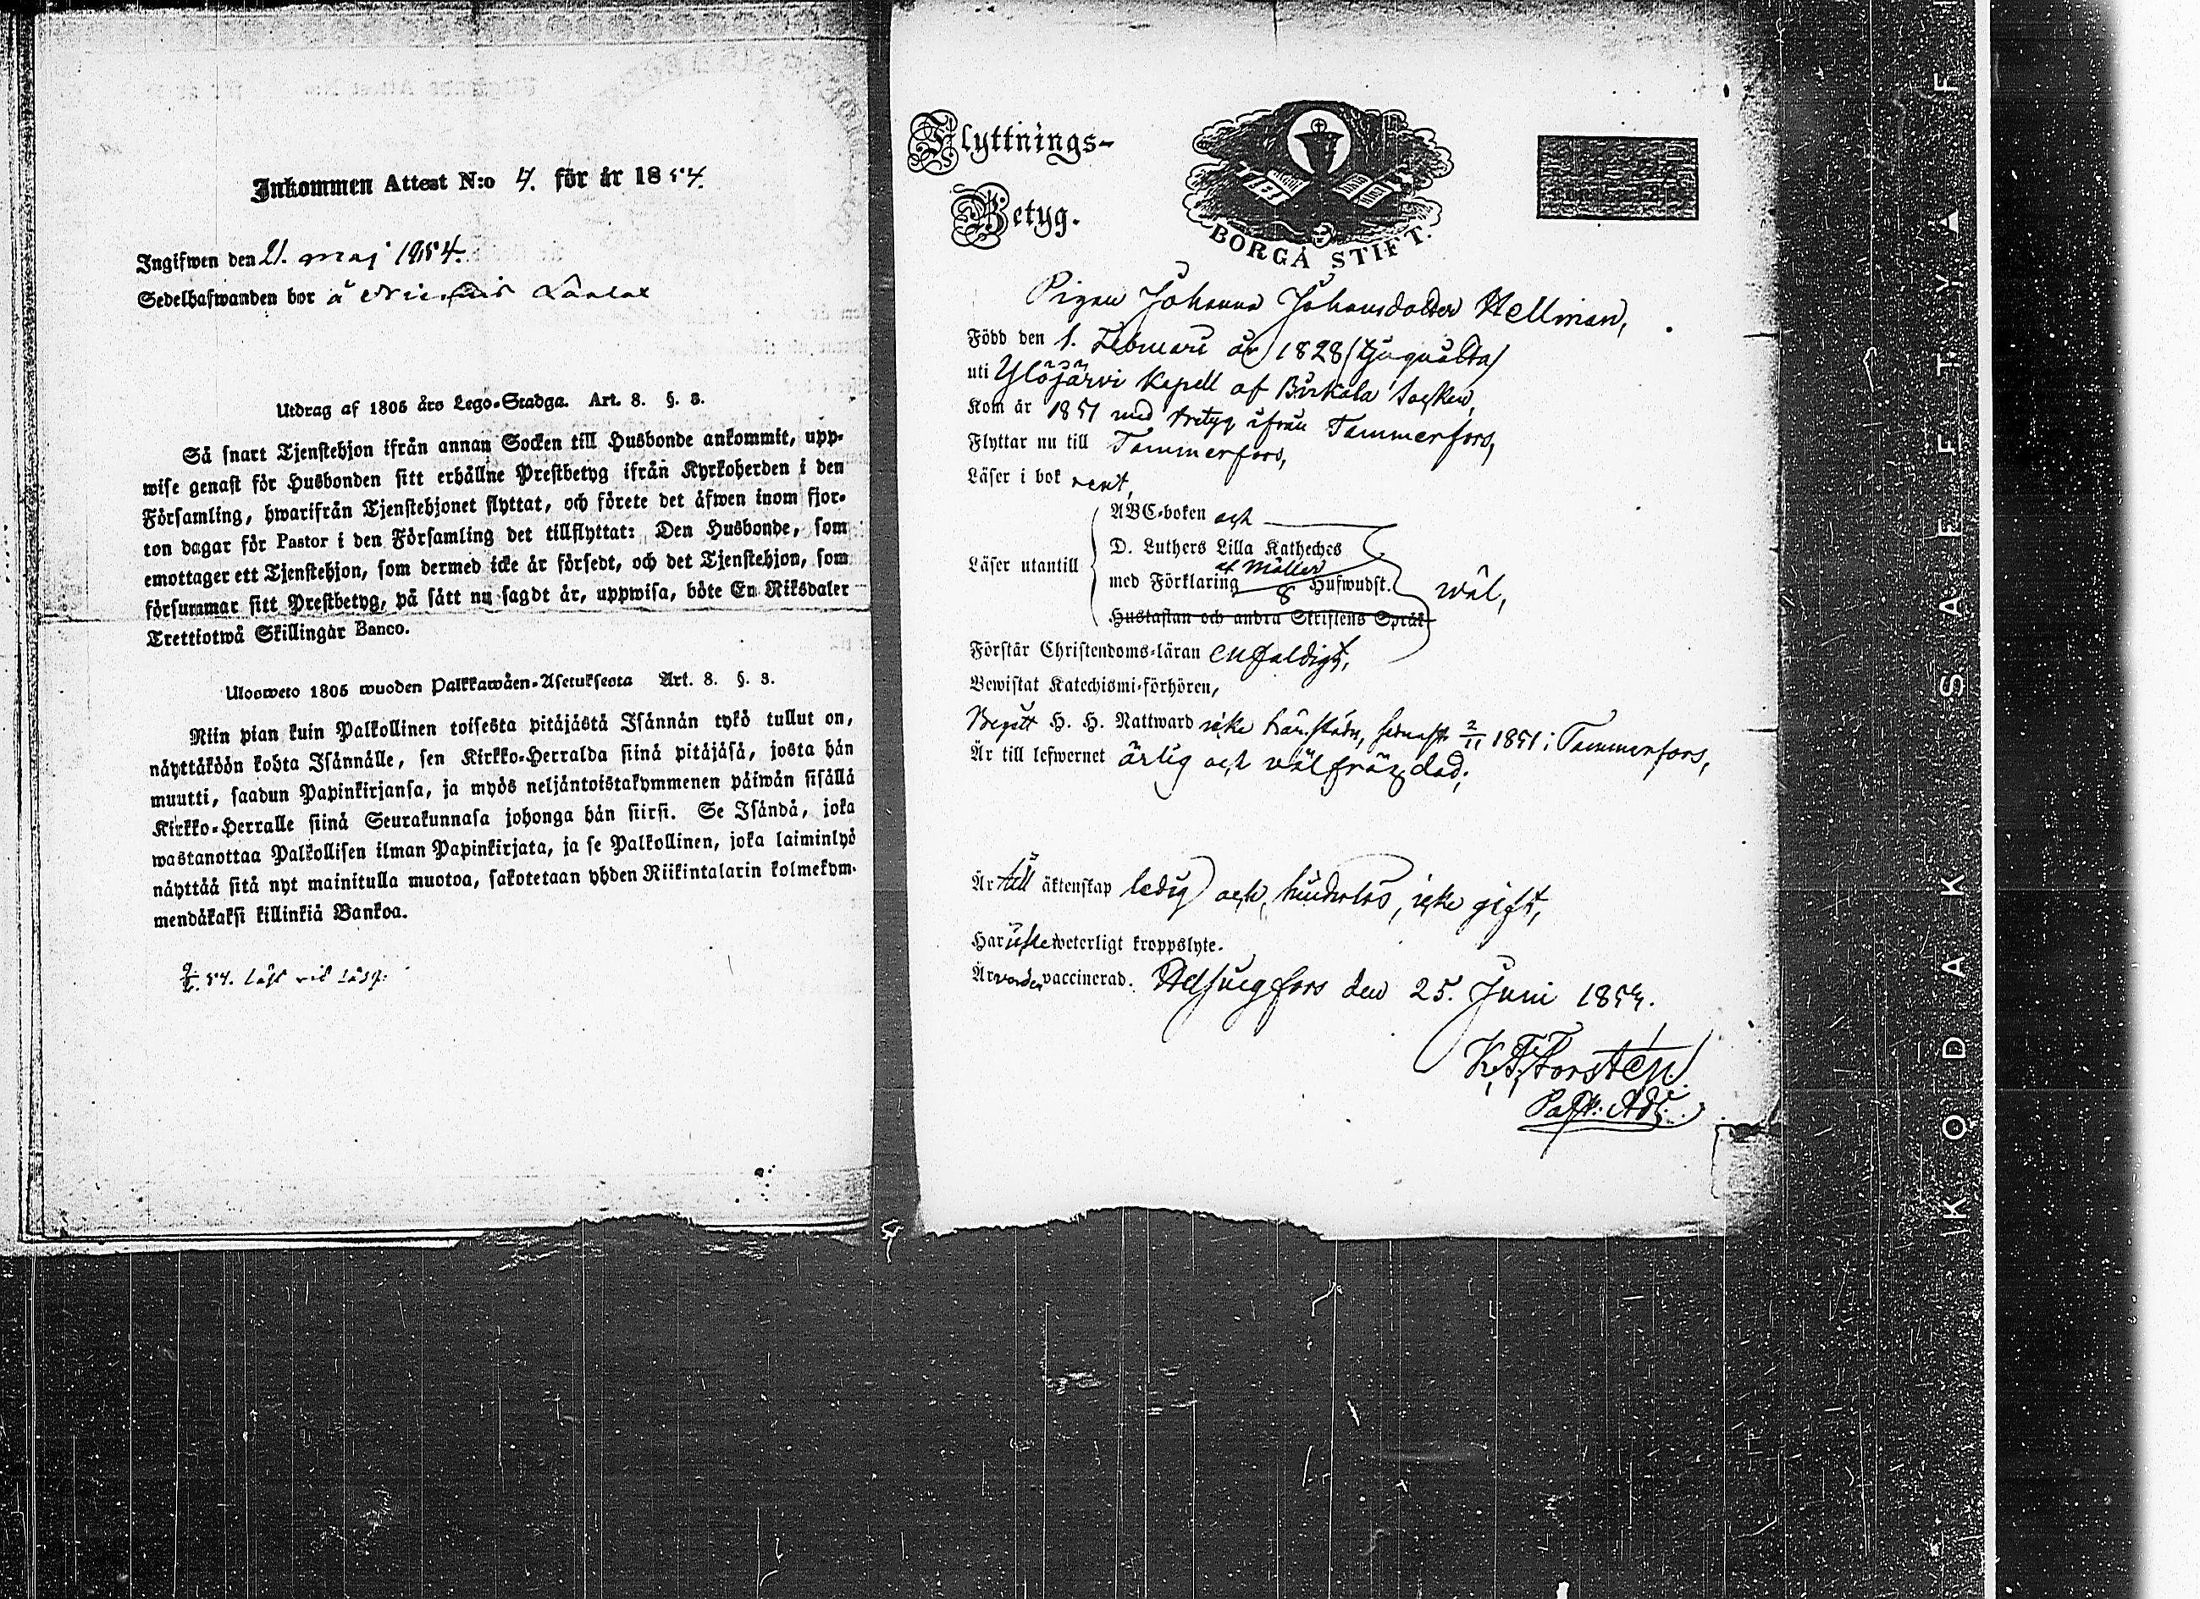 Inkommen Attest N:o 4. för år 1854.
Ingifwen den 21. maj 1854.
Sedelhafwanden bor å
Utdrag af 1805 års Lego-Stadga. Art. 8. §. 3.
Så snart Tjenstehjon ifrån annan Socken till Husbonde ankommit, upp-
wise genast för Husbonden sitt erhållne Prestbetyg ifrån Kyrkoherden i den
Församling, hwarifrån Tjenstehjonet flyttat, och förete det äfwen inom fjor-
ton dagar för Pastor i den Församling det tillflyttat: Den Husbonde, som
emottager ett Tjenstehjon, som dermed icke är försedt, och det Tjenstehjon, som
försummar sitt Prestbetyg, på sätt nu sagdt är, uppwisa, böte En Riksdaler
Trettiotwå Skillingar Banco.
Ulosweto 1805 wuoden Palkkawäen-Asetuksesta Art. 8. §. 3.
Niin pian kuin Palkollinen toisesta pitäjästä Isännän tykö tullut on,
näyttäköön kohta Isännälle, sen Kirkko-Herralda siinä pitäjäsä, josta hän
muutti, saadun Papinkirjansa, ja myös neljäntoistakymmenen päiwän sisällä
Kirkko-Herralle siinä Seurakunnasa johonga hän siirsi. Se Isändä, joka
wastanottaa Palkollisen ilman Papinkirjata, ja se Palkollinen, joka laiminlyö
näyttää sitä nyt mainitulla muotoa, sakotetaan yhden Riikintalarin kolmekym-
mendäkaksi killinkiä Bankoa.
54. läst vid
Flyttnings-
Betyg.
BORGÅ STIFT.
Pigan Johanna Johansdotter Hellman,
Född den 1. Februari år 1828 (tjuguåtta)
uti Ylöjärvi Kapell af Birkala Socken,
Kom år 1851 med betyg ifrån Tammerfors,
Flyttar nu till Tammerfors,
Läser i bok rent,
ABC-boken och
D. Luthers Lilla Katheches
Läser utantill
af Möller
med Förklaring 8 Hufwudst. wäl,
Hustaflan och andra Skriftens Språk
Förstår Christendoms-läran enfaldigt,
Bewistat Katechismi-förhören,
Begått H. H. Nattward icke härstädes, senast 2/11 1851 i Tammerfors,
Är till lefwernet ärlig och välfrägdad;
Är till äktenskap ledig och hinderlös, icke gift,
Har icke weterligt kroppslyte.
Är vorden vaccinerad. Helsingfors den 25. Juni 1853.
K. F. Forstén
Past. Adj.
KODAK SAFETY ▲ F